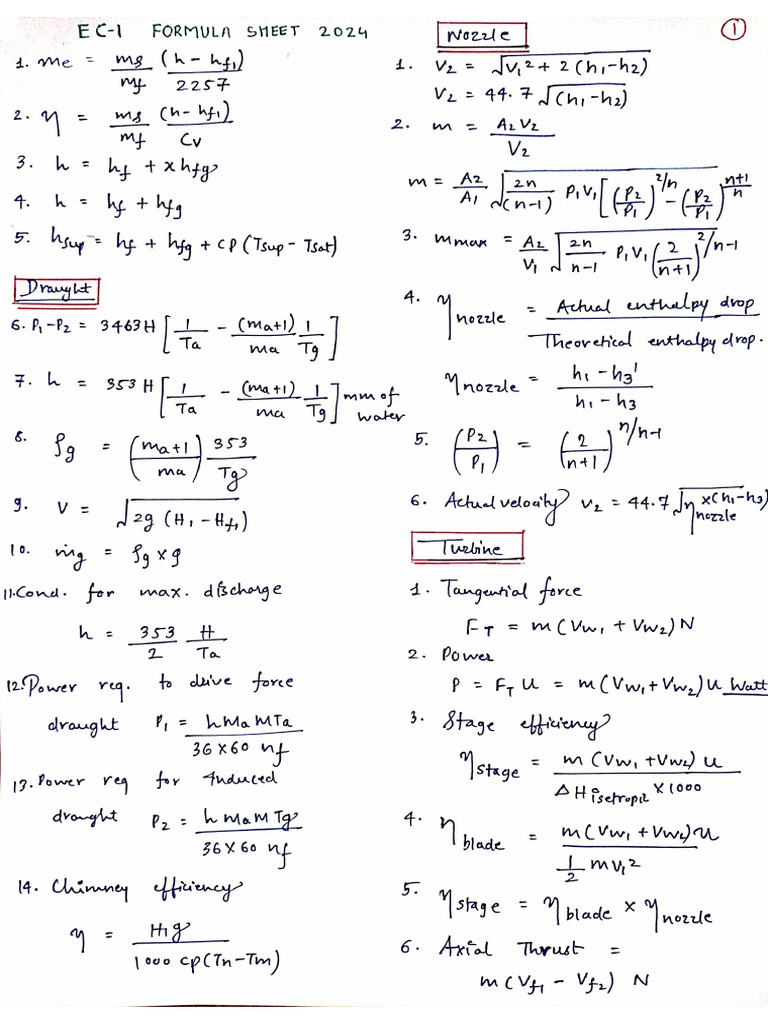 EC-1 FORMULA SHEET 2024
1. me = ms/mf (h - hf1)/2257
2. η = ms/mf (h - hf1)/Cv
3. h = hf + x hfg
4. h = hf + hfg
5. hsup = hf + hfg + cp (Tsup - Tsat)
Draught
6. P1 - P2 = 3463H [1/Ta - (ma+1)/ma 1/Tg]
7. h = 353H [1/Ta - (ma+1)/ma 1/Tg] mm of water
8. ρg = ((ma+1)/ma) 353/Tg
9. V = √2g (H1 - Hf1)
10. ṁg = ρg × ρ
11. Cond. for max. discharge
h = 353/2 H/Ta
12. Power req. to drive force
draught P1 = h Ma M Ta / 36×60 nf
13. Power req for Induced
draught P2 = h Ma M Tg / 36×60 nf
14. Chimney efficiency
η = H1g / 1000 cp(Tn - Tm)
1
Nozzle
1. V2 = √V1² + 2(h1 - h2)
V2 = 44.7 √(h1 - h2)
2. m = A2 V2 / V2
m = A2/A1 √2n/(n-1) P1V1 [(P2/P1)^2/n - (P2/P1)^n+1/n
3. mmax = A2/V1 √2n/n-1 P1V1 (2/n+1)^2/n-1
4. ηnozzle = Actual enthalpy drop / Theoretical enthalpy drop.
ηnozzle = h1 - h3' / h1 - h3
5. (P2/P1) = (2/n+1)^n/n-1
6. Actual velocity v2 = 44.7 √ηnozzle × (h1 - h3)
Turbine
1. Tangential force
FT = m(Vw1 + Vw2) N
2. Power
P = FT U = m(Vw1 + Vw2) U Watt
3. Stage efficiency
ηstage = m(Vw1 + Vw2) U / ΔH isetropic × 1000
4. ηblade = m(Vw1 + Vw2) U / 1/2 mv1²
5. ηstage = ηblade × ηnozzle
6. Axial Thrust =
m(Vf1 - Vf2) N